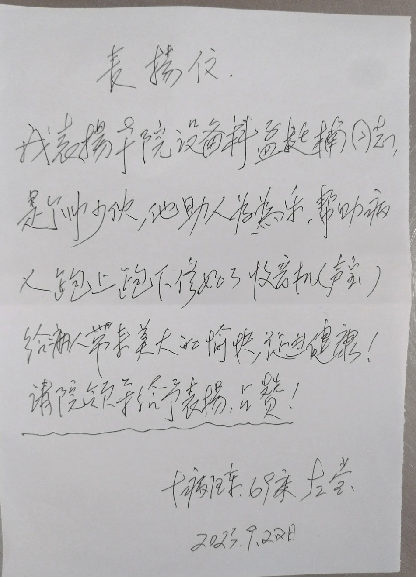 表揚信.
我表揚本院设备科孟楠同志,
是个帅小伙,他助人为乐,帮助病
人跑上跑下修好了收音机(声宝)
给病人带来美大的愉快,促进健康!
请院领导给予表揚.点赞!
十病区东.69床 左莹
2023.9.22日